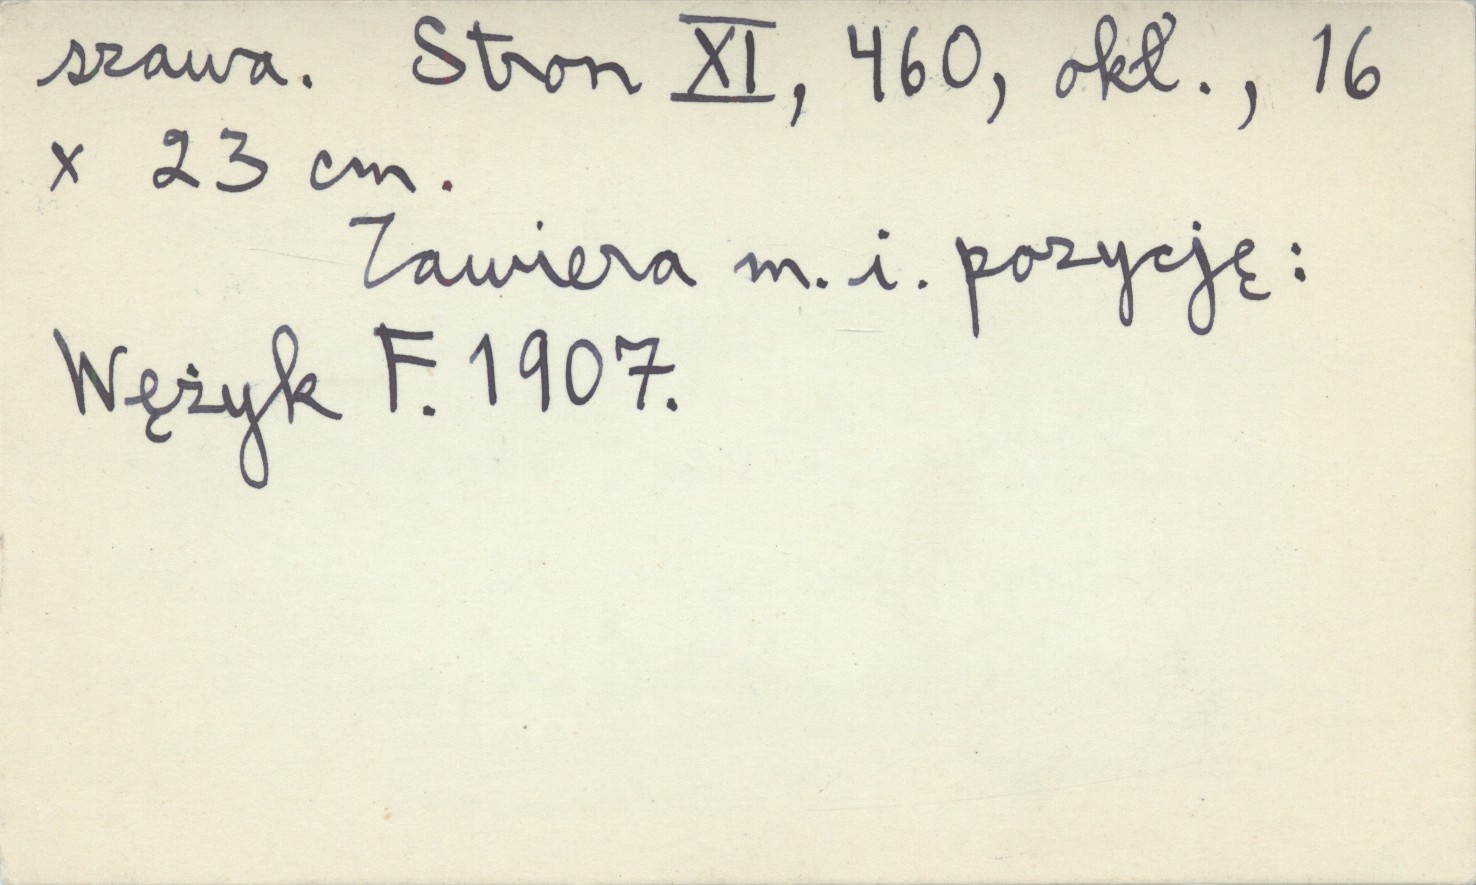 szawa. Stron XI, 460, okł., 16
x 23 cm.
Zawiera m. i. pozycję:
Wężyk F. 1907.